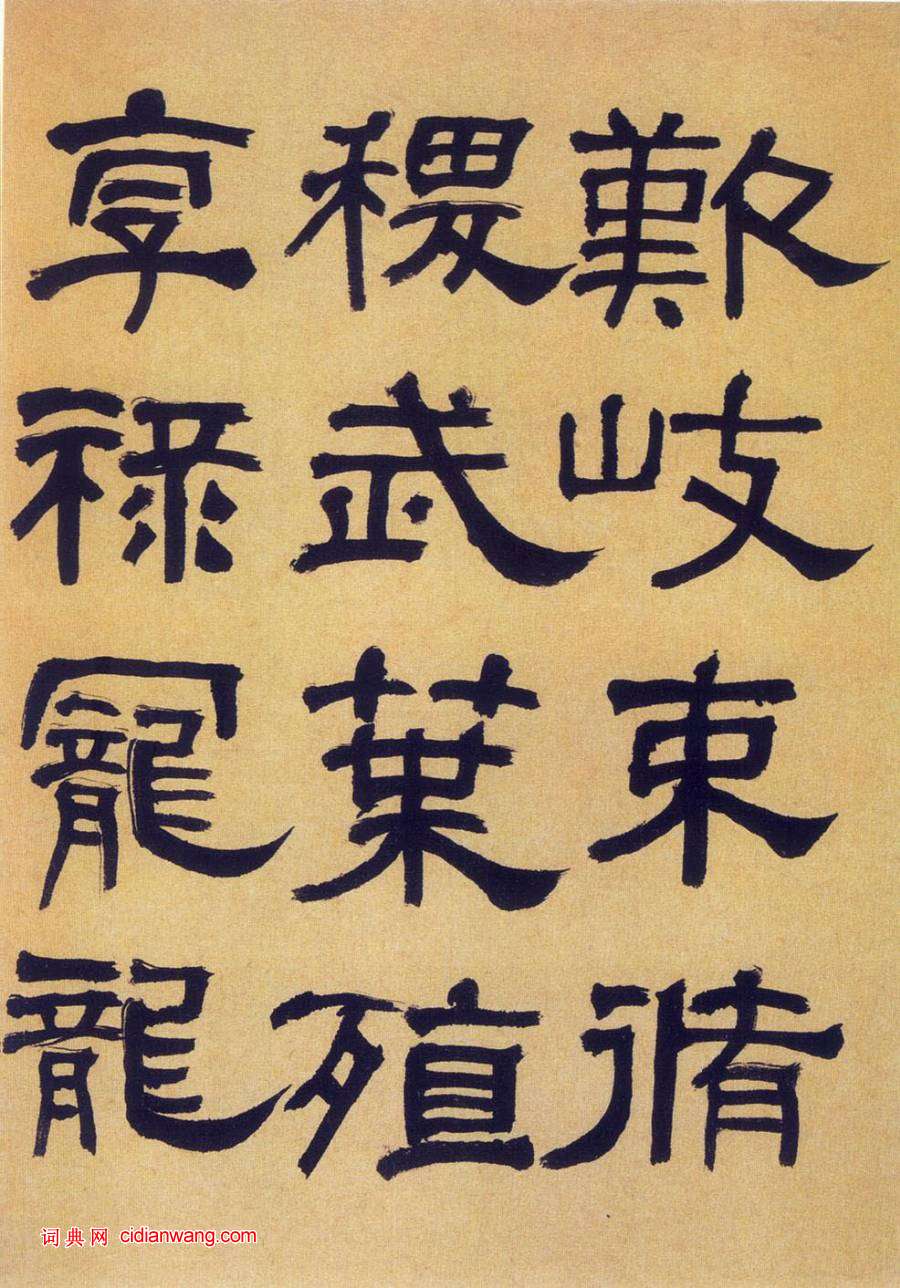 歎岐束脩
稷武葉殖
享祿寵龍
词典网 cidianwang.com